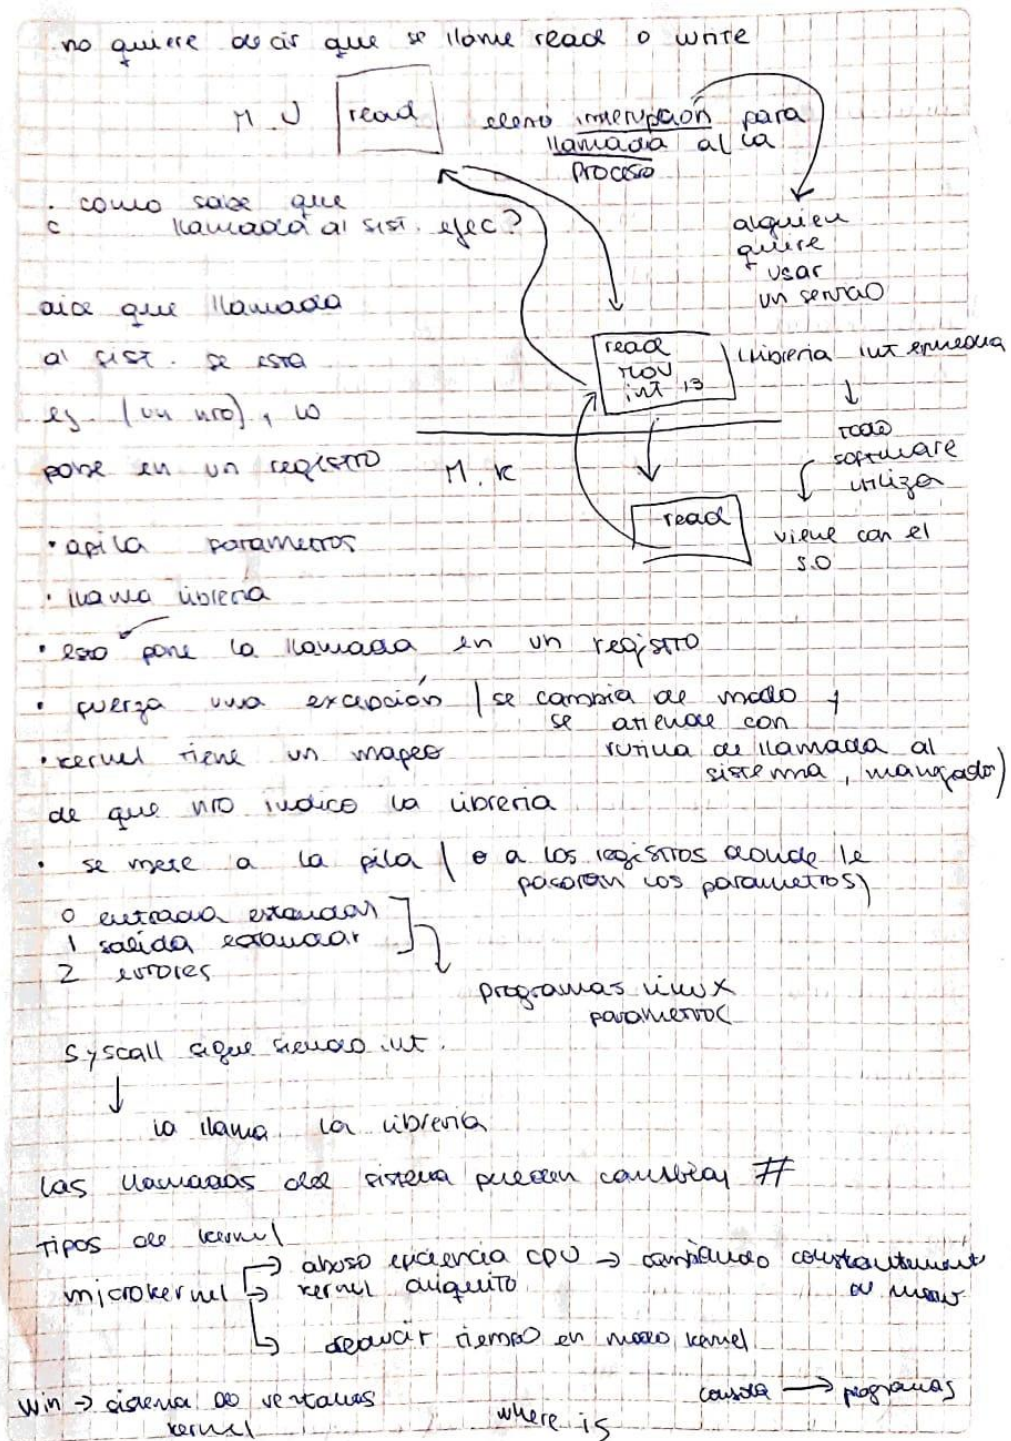 no quiere decir que se llame read o write
M. U
read
interrupción para
llamada al
proceso
alguien
quiere
usar
un servicio
. como sabe que
c llamada al sist. ejec?
dice que llamada
al sist. se esta
ej (un nro), lo
pone en un registro
read
mov
int 13
libreria intermedia
todo
software
utiliza
viene con el
S.O
M. K
read
• apila parametros
• llama libreria
• esto pone la llamada en un registro
• fuerza una excepción (se cambia de modo y
se atiende con
rutina de llamada al
sistema, manejador)
• kernel tiene un mapeo
de que nro indico la libreria
• se mete a la pila (o a los registros donde le
pasaron los parametros)
0 entrada estandar
1 salida estandar
2 errores
programas linux
parametros
Syscall sigue siendo int.
la llama la libreria
las llamadas del sistema pueden cambiar #
Tipos de kernel
microkernel
eficiencia CPU → cambiando constantement
de modo
kernel chiquito
reducir tiempo en modo kernel
Win → sistema de ventanas
kernel
where is
consola → programas